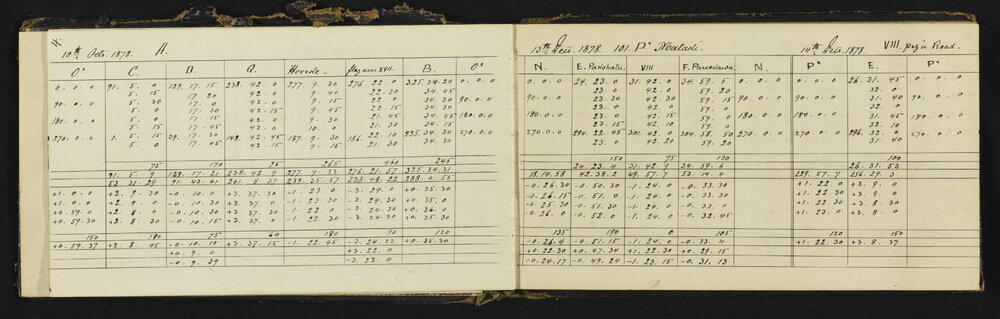 4.
10th Octr. 1878. A.
O* C. D. G. Howede_ Hazum XVII. B. O*
0. 0. 0 91. 5. 0 129. 17. 15 238. 42. 0 277. 9. 30 276. 22. 0 325. 34. 20 0. 0. 0
5. 15 17. 20 42. 0 9. 30 22. 30 34. 45
90. 0. 0 5. 0 17. 0 42. 0 9. 30 22. 0 34. 30 90. 0. 0
5. 0 17. 30 42. 15 9. 45 22. 15 34. 30
180. 0. 0 5. 0 17. 0 42. 0 9. 30 21. 45 34. 45 180. 0. 0
5. 15 17. 45 42. 0 10. 0 21. 30 34. 15
270. 0. 0 1. 5. 15 39. 17. 30 148. 42. 45 187. 9. 30 186. 22. 10 235. 34. 30 270. 0. 0
5. 0 17. 0 42. 15 9. 45 22. 0 34. 30
75 170 75 265 460 245
91. 5. 9 129. 17. 21 238. 42. 9 277. 9. 33 276. 21. 57 325. 34. 31
53. 31. 29 91. 43. 41 201. 8. 37 239. 35. 57 238. 48. 22 288. 0. 53
+1. 0. 0 +2. 9. 30 -0. 10. 0 +3. 37. 30 -1. 23. 0 -3. 24. 0 +0. 35. 30
+1. 0. 0 +2. 9. 0 -0. 10. 30 +3. 37. 0 -1. 23. 30 -3. 24. 30 +0. 35. 0
+0. 59. 0 +2. 8. 0 -0. 10. 30 +3. 37. 30 -1. 22. 0 -3. 24. 30 +0. 36. 0
+0. 59. 30 +2. 8. 30 -0. 10. 15 +3. 37. 0 -1. 22. 30 -3. 24. 30 +0. 35. 30
150 180 75 60 180 90 120
+0. 59. 37 +2. 8. 45 -0. 10. 19 +3. 37. 15 -1. 22. 45 -3. 24. 22 +0. 35. 30
+0. 9. 0 +3. 22. 0
-0. 9. 39 -3. 23. 11
13th Decr. 1878 101. P* 14th Decr. 1878. VIII. peg in Road.
N. E. Pukohatu VIII N. P* E. P*
0. 0. 0 24. 23. 0 31. 42. 0 34. 59. 5 0. 0. 0 0. 0. 0 26. 31. 45 0. 0. 0
23. 0 42. 30 59. 20 32. 0
90. 0. 0 23. 30 42. 30 59. 15 90. 0. 0 90. 0. 0 31. 40 90. 0. 0
23. 0 42. 0 59. 0 32. 0
180. 0. 0 23. 0 42. 15 59. 0 180. 0. 0 180. 0. 0 31. 45 180. 0. 0
23. 15 42. 10 59. 0 32. 10
270. 0. 0 294. 22. 45 301. 42. 0 304. 58. 50 270. 0. 0 270. 0. 0 296. 32. 0 270. 0. 0
23. 0 42. 20 59. 20 31. 40
150 75 130 100
24. 23. 4 31. 42. 9 34. 59. 6 26. 31. 53
18. 14. 58 42. 38. 2 49. 57. 7 53. 14. 4 229. 57. 7 256. 29. 3
-0. 26. 30 -0. 50. 30 -1. 24. 0 -0. 33. 30 +1. 22. 0 +3. 9. 0
-0. 26. 15 -0. 51. 0 -1. 24. 0 -0. 33. 0 +1. 22. 30 +3. 9. 0
-0. 25. 30 -0. 51. 30 -1. 24. 0 -0. 33. 0 +1. 22. 30 +3. 8. 30
-0. 26. 0 -0. 52. 0 -1. 24. 0 -0. 32. 45 +1. 23. 0 +3. 8. 0
135 180 0 105 120 150
-0. 26. 4 -0. 51. 15 -1. 24. 0 -0. 33. 11 +1. 22. 30 +3. 8. 37
+0. 22. 30 +0. 47. 34 +1. 22. 30 +0. 29. 15
-0. 24. 17 -0. 49. 24 -1. 23. 15 -0. 31. 13